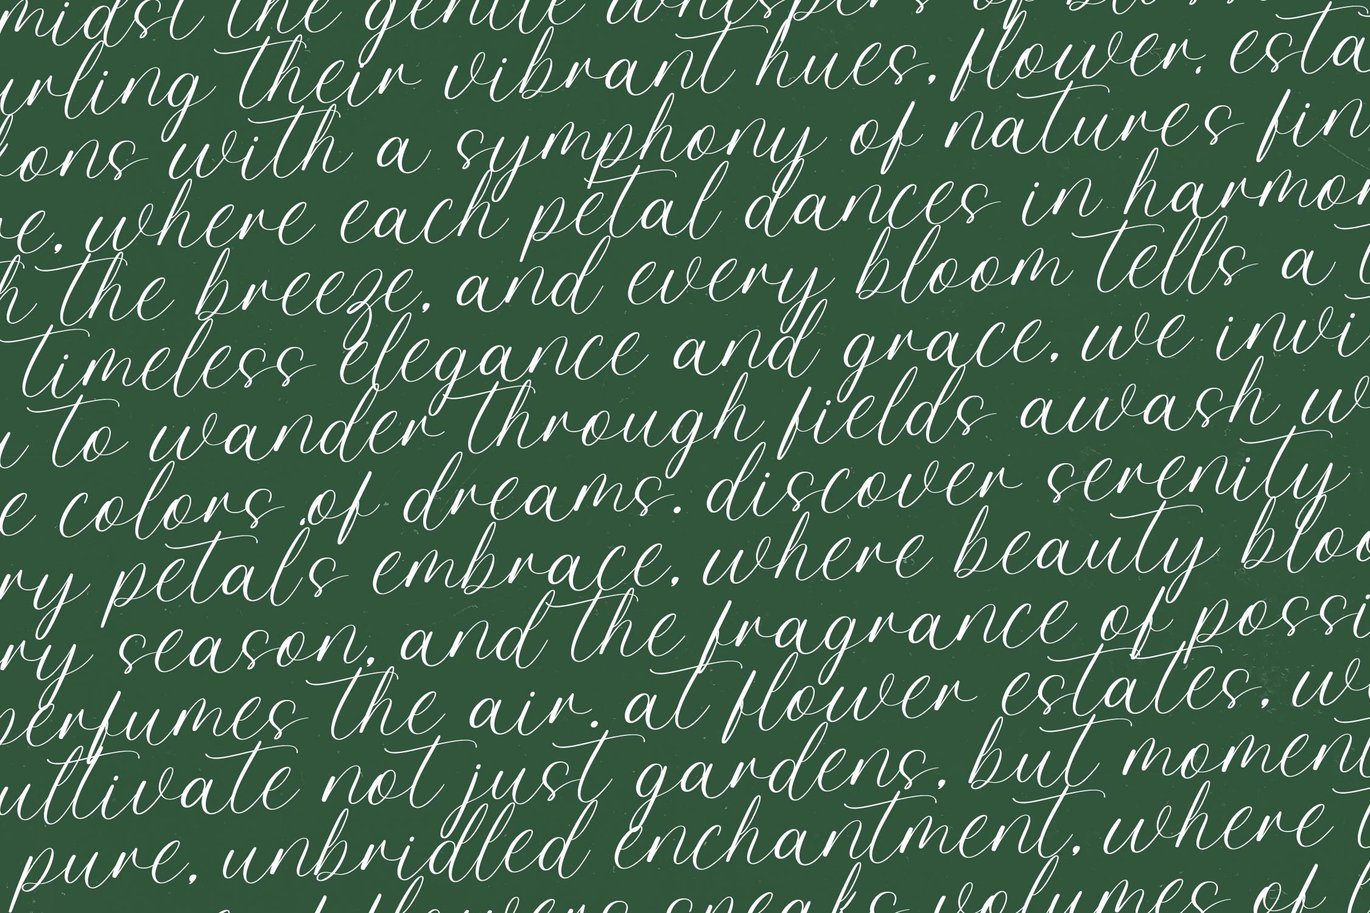 midst the gentle whispers of
urling their vibrant hues, flower, esta
kons with a symphony of natures fin
re, where each petal dances in harmon
h the breeze, and every bloom tells a
timeless elegance and grace, we invi
u to wander through fields awash w
e colors of dreams. discover serenity
ry petals embrace, where beauty bloo
ry season, and the fragrance of possi
perfumes the air. at flower estates, w
ultivate not just gardens, but momen
pure, unbridled enchantment, where
flowers speaks volumes of